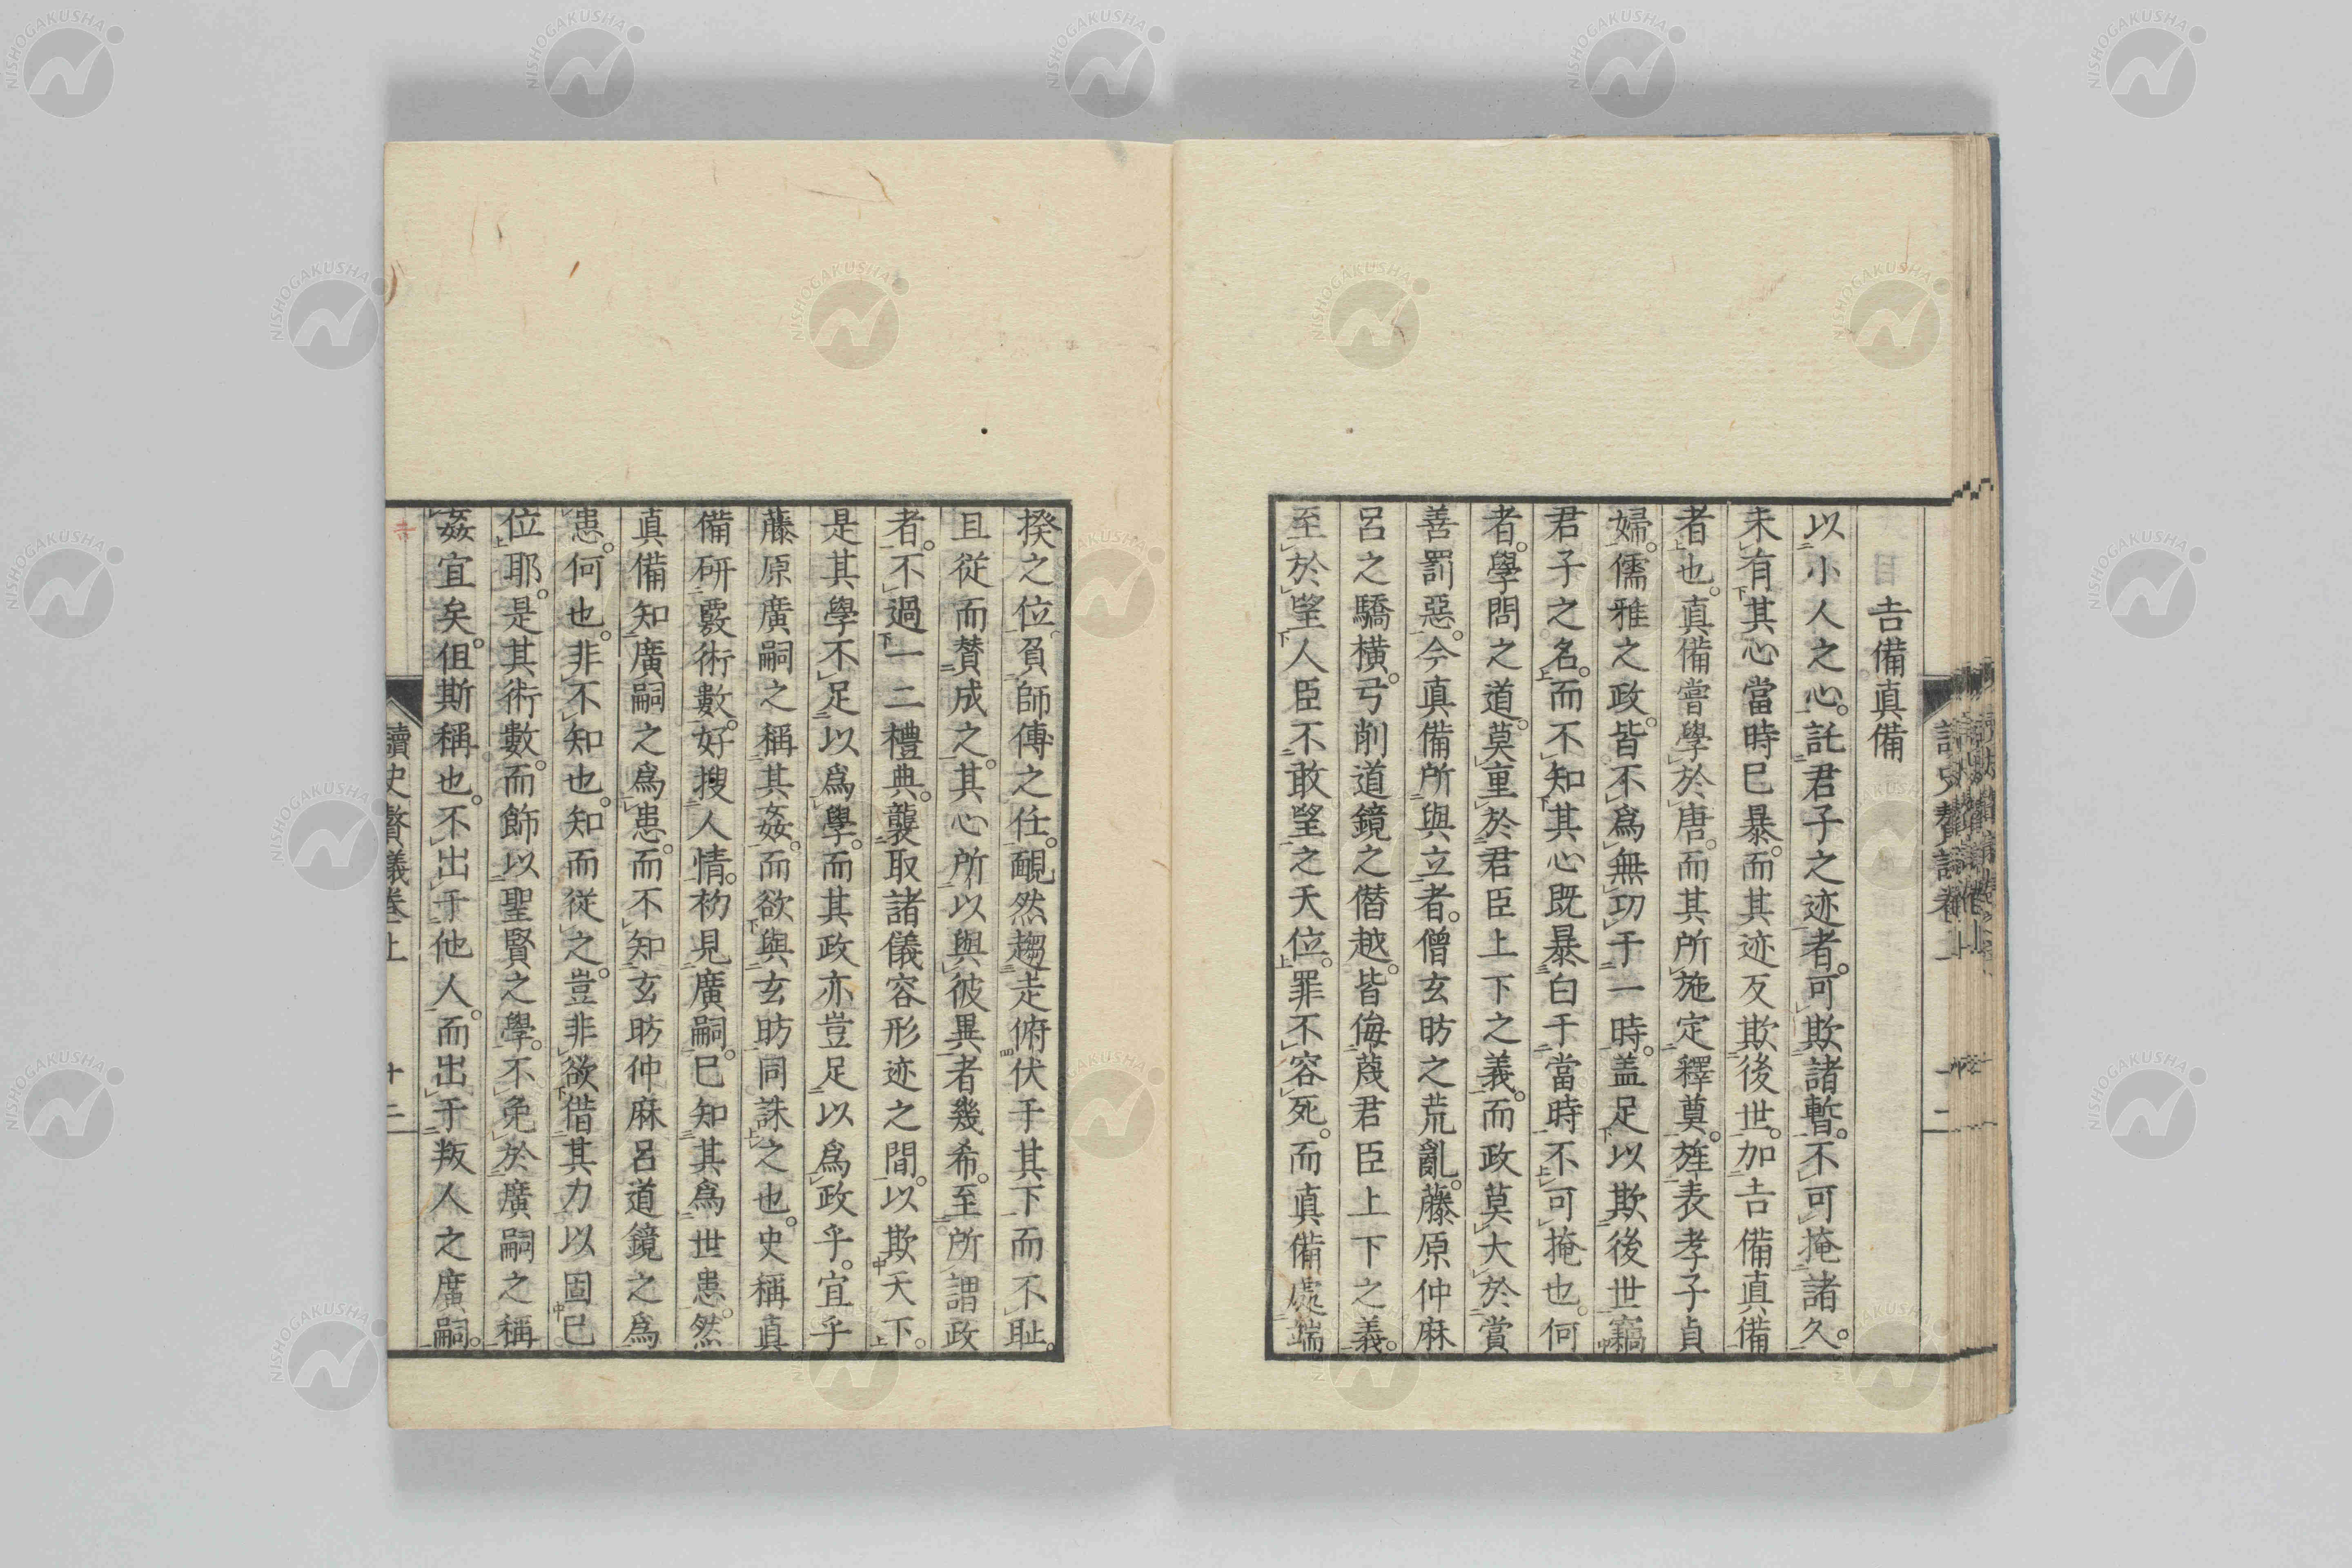 吉備真備
以小人之心。託君子之迹者。可欺諸暫。不可掩諸久。
未有其心當時已暴。而其迹反欺後世。加吉備真備
者也。真備嘗學於唐。而其所施定釋奠。旌表孝子貞
婦。儒雅之政。皆不為無功于一時。蓋足以欺後世竊
君子之名。而不知其心既暴白于當時不可掩也。何
者。學問之道。莫重於君臣上下之義。而政莫大於賞
善罰惡。今真備所與立者。僧玄昉之荒亂。藤原仲麻
呂之驕橫。弓削道鏡之僭越。皆侮蔑君臣上下之義。
至於望人臣不敢望之天位。罪不容死。而真備處端
揆之位。負師傅之任。靦然趨走俯伏于其下而不耻。
且從而贊成之。其心所以與彼異者幾希。至所謂政
者。不過一二禮典。襲取諸儀容形迹之間。以欺天下。
是其學不足以為學。而其政亦豈足以為政乎。宜乎
藤原廣嗣之稱其姦。而欲與玄昉同誅之也。史稱真
備研覈術數。好搜人情。初見廣嗣。已知其為世患。然
真備知廣嗣之為患。而不知玄昉仲麻呂道鏡之為
患。何也。非不知也。知而從之。豈非欲借其力以固己
位耶。是其術數。而飾以聖賢之學。不免於廣嗣之稱
姦宜矣。但斯稱也。不出于他人。而出于叛人之廣嗣。
讀史贅議卷上
十二
NISHOGAKUSHA